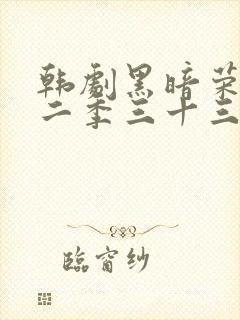 韩剧黑暗荣
二季三十三
临窗纱